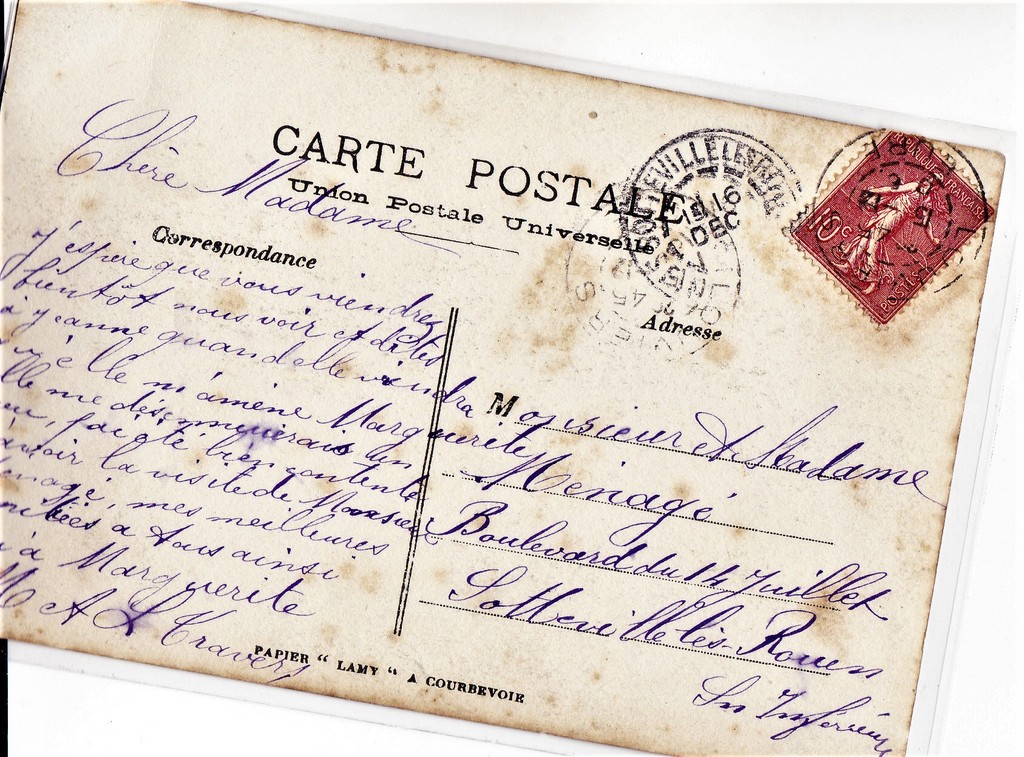 CARTE POSTALE
Union Postale Universelle
Correspondance
Adresse
Chère Madame
j'espère que vous viendrez
bientôt nous voir et dites
à Jeanne quand elle viendra
elle m'amène Marguerite
elle me désennuierais un
peu, j'ai été bien contente
d'avoir la visite de Monsieur
Menagé, mes meilleures
amitiées à tous ainsi
qu'à Marguerite
M A L Travers
Monsieur et Madame
Menagé
Boulevard du 14 Juillet
Sotteville-lès-Rouen
Sne Inférieure
SOTTEVILLE LES ROUEN
16
DEC
REPUBLIQUE FRANÇAISE
10c
POSTES
PAPIER "LAMY" A COURBEVOIE